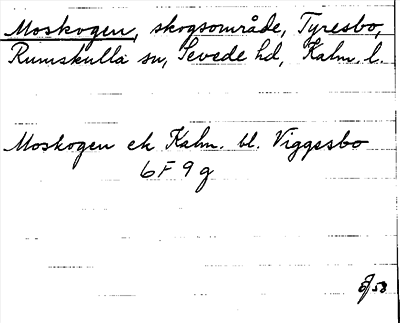 Moskogen, skogsområde, Tyresbo,
Rumskulla sn, Sevede hd, Kalm. l.
Moskogen ek Kalm. bl. Viggesbo
6 F 9 g